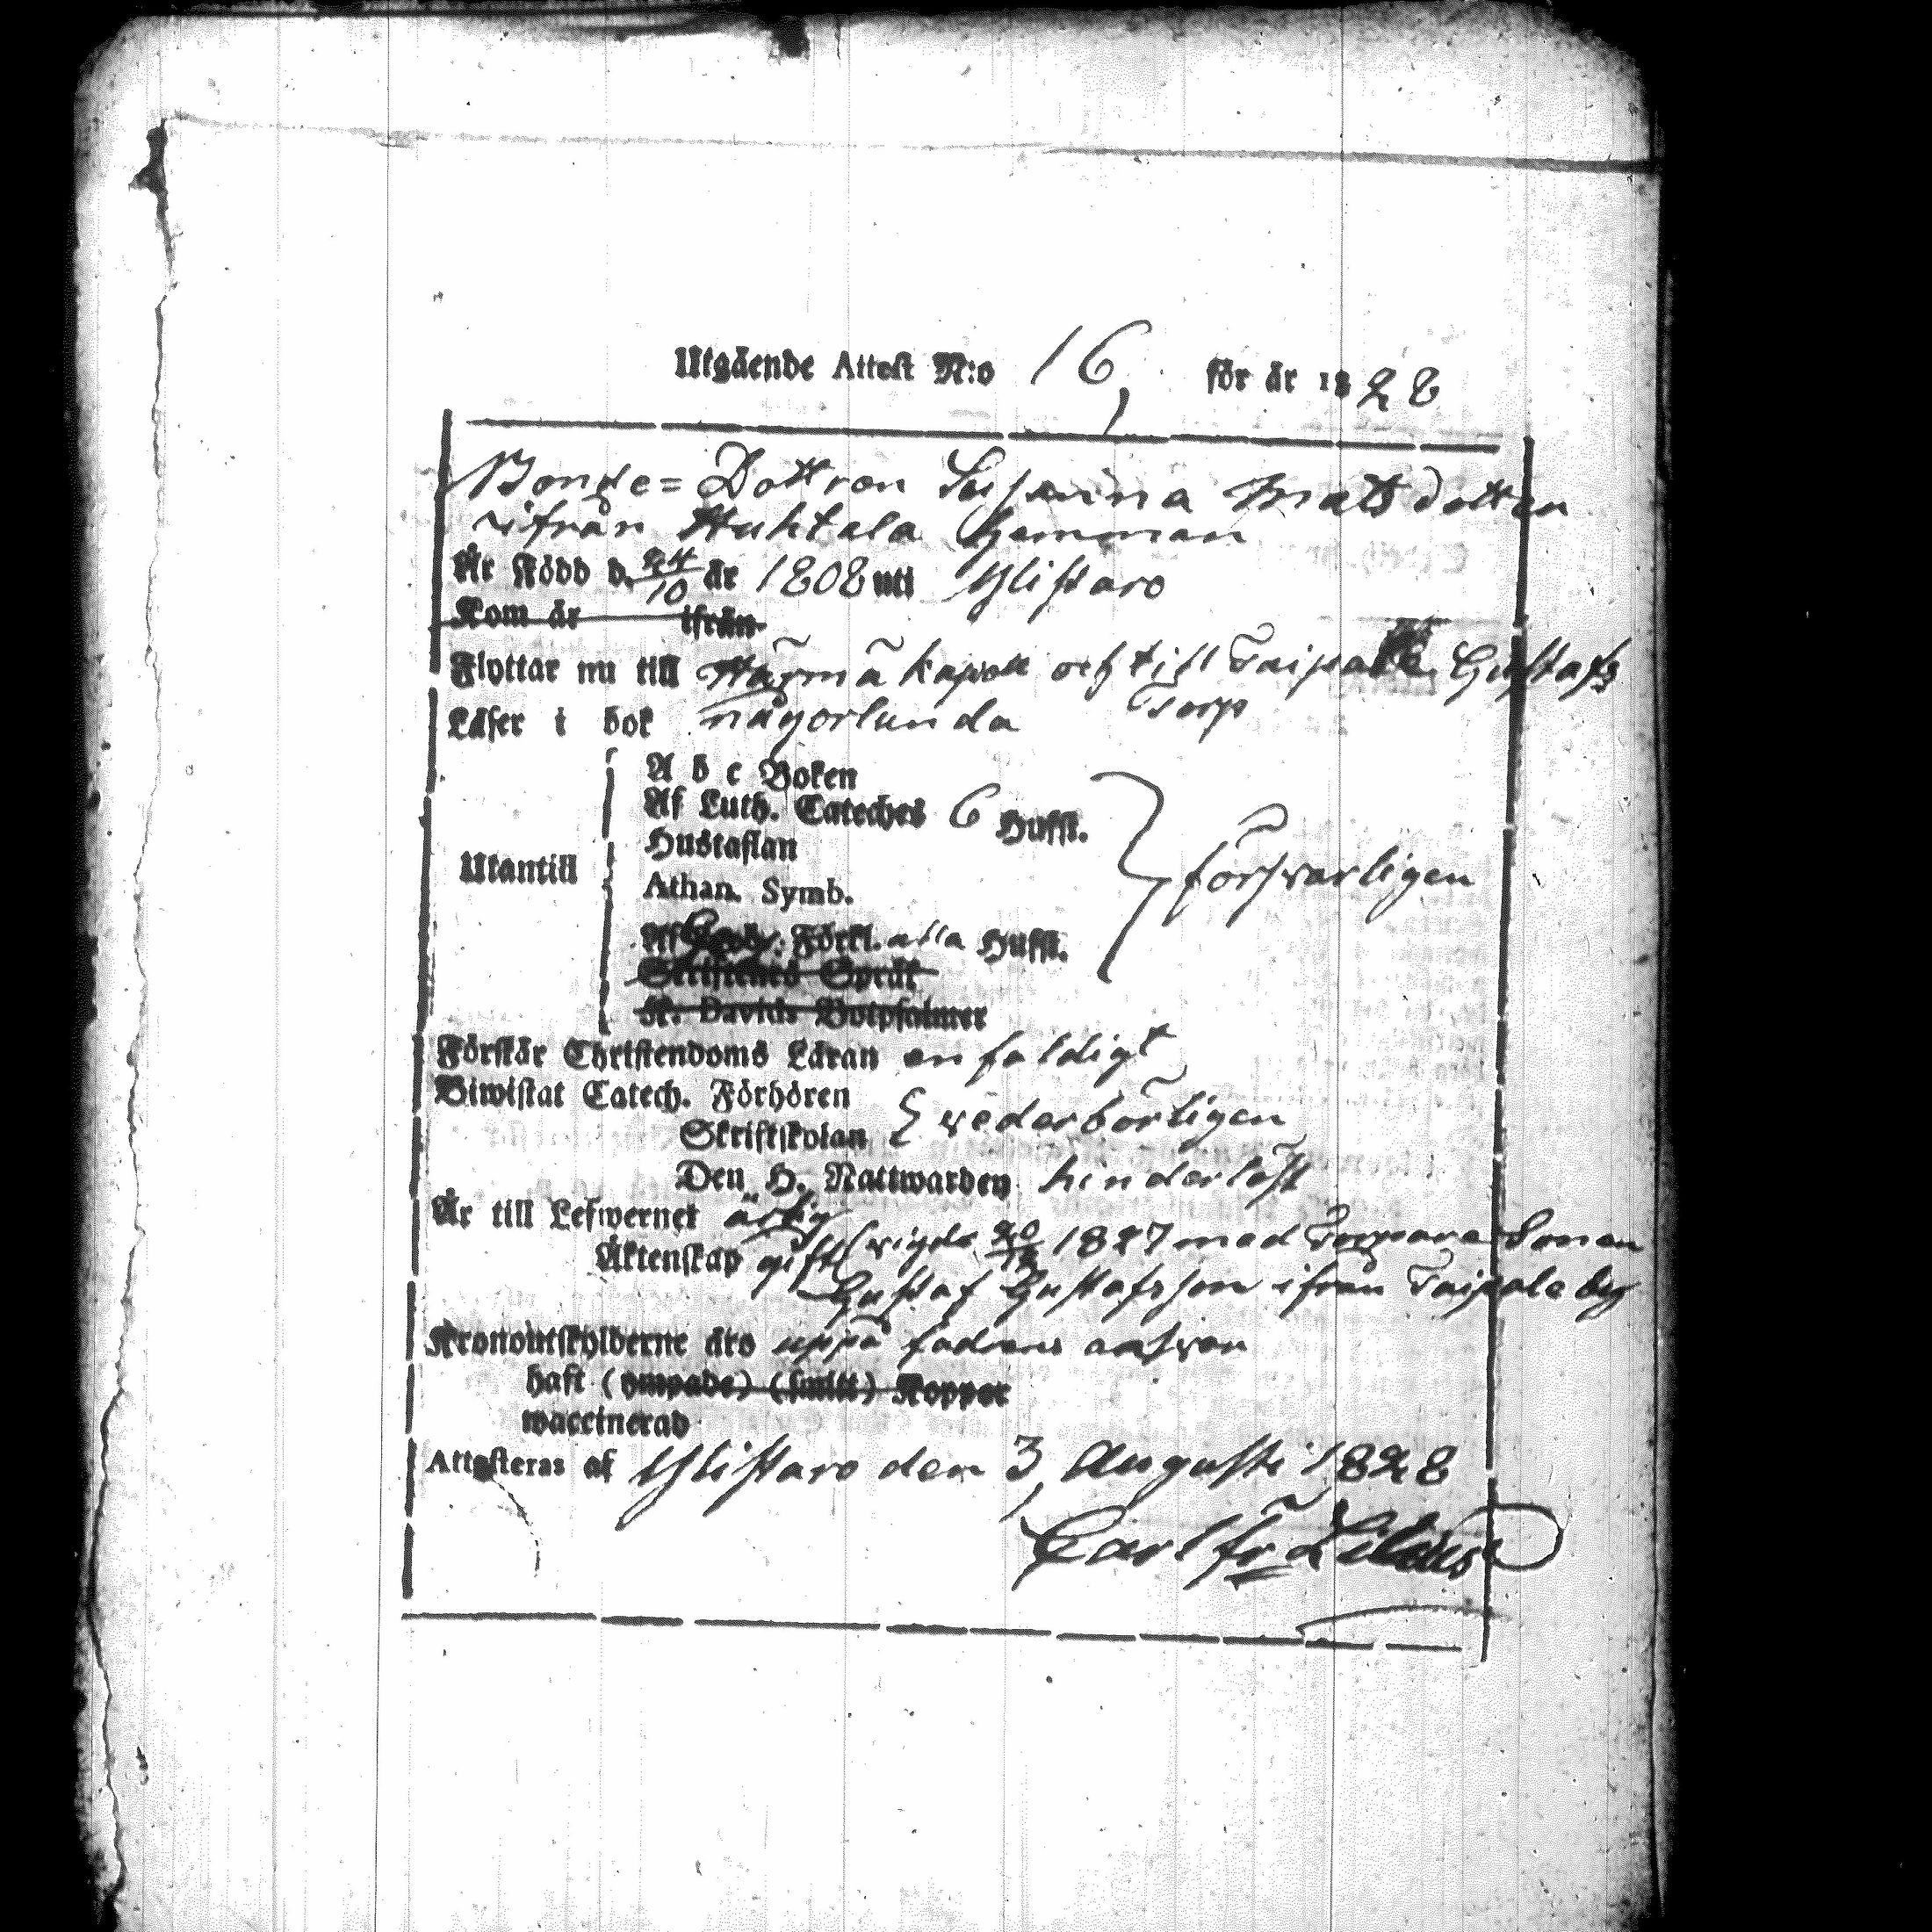 Utgående Attest N:o 16, för år 1828
Bonde=Dottren Susanna Matsdotter
ifrån Huhtala hemman
Är Född d. 24/10 år 1808 uti Ylistaro
Kom år ifrån
Flyttar nu till Härmä kapell och till Taipale Gustafs
Torp
Läser i bok någorlunda
A b c Boken
Af Luth. Cateches 6 Hufst.
Hustaflan
Utantill
Athan. Symb.
försvarligen
Förkl. alla Hufst.
Skriftenes Språk
K. Davids Botpsalmer
Förstår Christendoms Läran enfaldigt
Biwistat Catech. Förhören
Skriftskolan wederbörligen
Den H. Nattwarden hinderlöst
Är till Lefwernet ärlig
Äktenskap gift wigde 1827 med Torpare Sonen
Gustaf Gustafsson ifrån Taipale by
Kronoutskylderne äro uppå fadrens answar
haft (ympade) (smitt) Koppor
waccinerad
Attesteras af Ylistaro den 3 Augusti 1828
Carl Fr